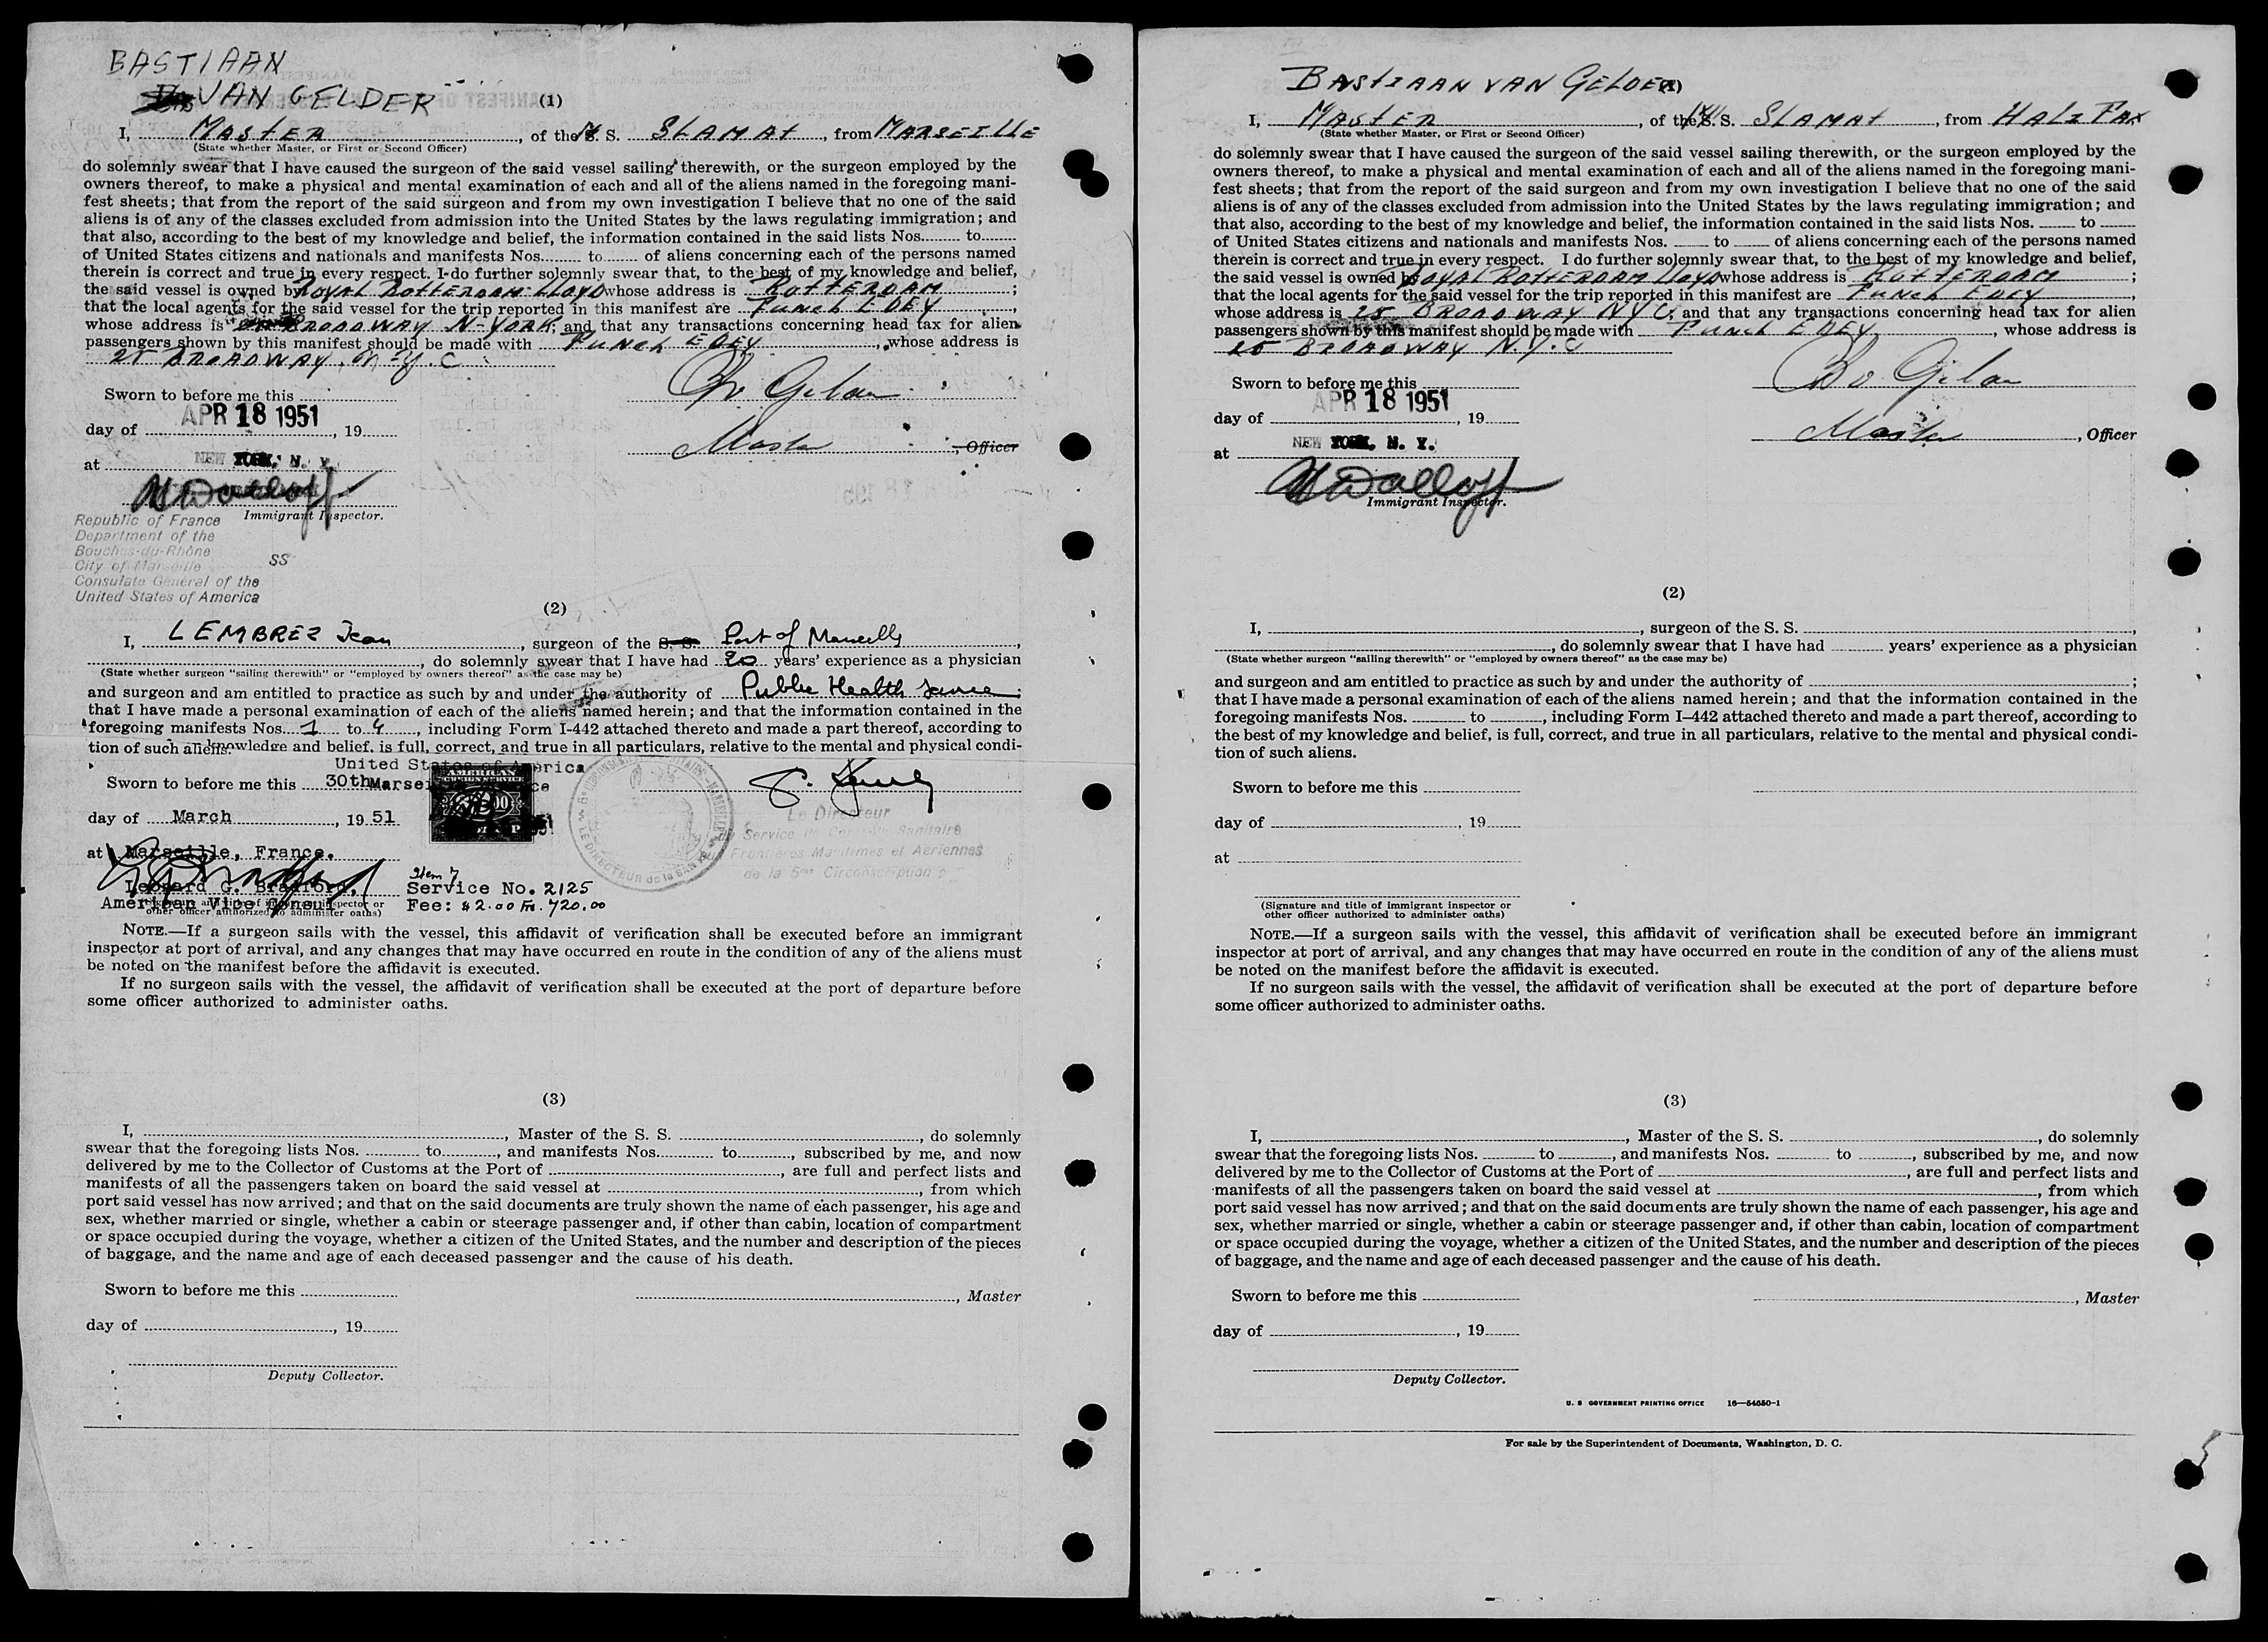 BASTIAAN
VAN GELDER
(1)
I, MASTER, of the M. S. SLAMAT, from MARSEILLE
(State whether Master, or First or Second Officer)
do solemnly swear that I have caused the surgeon of the said vessel sailing therewith, or the surgeon employed by the
owners thereof, to make a physical and mental examination of each and all of the aliens named in the foregoing mani-
fest sheets; that from the report of the said surgeon and from my own investigation I believe that no one of the said
aliens is of any of the classes excluded from admission into the United States by the laws regulating immigration; and
that also, according to the best of my knowledge and belief, the information contained in the said lists Nos. to
of United States citizens and nationals and manifests Nos. to of aliens concerning each of the persons named
therein is correct and true in every respect. I do further solemnly swear that, to the best of my knowledge and belief,
the said vessel is owned by ROYAL ROTTERDAM LLOYD whose address is ROTTERDAM;
that the local agents for the said vessel for the trip reported in this manifest are FUNCH EDEY,
whose address is BROADWAY N-YORK; and that any transactions concerning head tax for alien
passengers shown by this manifest should be made with FUNCH EDEY, whose address is
25 BROADWAY. N-Y.C
Sworn to before me this
day of APR 18 1951, 19
Master, Officer
at NEW YORK, N. Y.
Immigrant Inspector.
Republic of France
Department of the
Bouches-du-Rhône
City of Marseille SS
Consulate General of the
United States of America
(2)
I, LEMBREZ Jean, surgeon of the S. S. Port of Marseille,
, do solemnly swear that I have had 20 years' experience as a physician
(State whether surgeon "sailing therewith" or "employed by owners thereof" as the case may be)
and surgeon and am entitled to practice as such by and under the authority of Public Health Service;
that I have made a personal examination of each of the aliens named herein; and that the information contained in the
foregoing manifests Nos. 1 to 4, including Form I-442 attached thereto and made a part thereof, according to
knowledge and belief, is full, correct, and true in all particulars, relative to the mental and physical condi-
tion of such aliens.
United States of America
Sworn to before me this 30th
day of March, 19 51
Le Directeur
Service de Contrôle Sanitaire
Frontières Maritimes et Aériennes
de la 5me Circonscription
at Marseille, France.
Leonard G. Bradford,
American Vice Consul
other officer authorized to administer oaths)
Item 7
Service No. 2125
Fee: $2.00 Fr. 720.00
NOTE.—If a surgeon sails with the vessel, this affidavit of verification shall be executed before an immigrant
inspector at port of arrival, and any changes that may have occurred en route in the condition of any of the aliens must
be noted on the manifest before the affidavit is executed.
If no surgeon sails with the vessel, the affidavit of verification shall be executed at the port of departure before
some officer authorized to administer oaths.
(3)
I, , Master of the S. S. , do solemnly
swear that the foregoing lists Nos. to , and manifests Nos. to , subscribed by me, and now
delivered by me to the Collector of Customs at the Port of , are full and perfect lists and
manifests of all the passengers taken on board the said vessel at , from which
port said vessel has now arrived; and that on the said documents are truly shown the name of each passenger, his age and
sex, whether married or single, whether a cabin or steerage passenger and, if other than cabin, location of compartment
or space occupied during the voyage, whether a citizen of the United States, and the number and description of the pieces
of baggage, and the name and age of each deceased passenger and the cause of his death.
Sworn to before me this
, Master
day of , 19
Deputy Collector.
BASTIAAN VAN GELDER
I, MASTER, of the S. S. SLAMAT, from HALIFAX
(State whether Master, or First or Second Officer)
do solemnly swear that I have caused the surgeon of the said vessel sailing therewith, or the surgeon employed by the
owners thereof, to make a physical and mental examination of each and all of the aliens named in the foregoing mani-
fest sheets; that from the report of the said surgeon and from my own investigation I believe that no one of the said
aliens is of any of the classes excluded from admission into the United States by the laws regulating immigration; and
that also, according to the best of my knowledge and belief, the information contained in the said lists Nos. to
of United States citizens and nationals and manifests Nos. to of aliens concerning each of the persons named
therein is correct and true in every respect. I do further solemnly swear that, to the best of my knowledge and belief,
the said vessel is owned by ROYAL ROTTERDAM LLOYD whose address is ROTTERDAM;
that the local agents for the said vessel for the trip reported in this manifest are FUNCH EDEY,
whose address is 25 BROADWAY NYC, and that any transactions concerning head tax for alien
passengers shown by this manifest should be made with FUNCH EDEY, whose address is
25 BROADWAY N.Y.C
Sworn to before me this
day of APR 18 1951, 19
Master, Officer
at NEW YORK, N. Y.
Immigrant Inspector.
(2)
I, , surgeon of the S. S. ,
, do solemnly swear that I have had years' experience as a physician
(State whether surgeon "sailing therewith" or "employed by owners thereof" as the case may be)
and surgeon and am entitled to practice as such by and under the authority of ;
that I have made a personal examination of each of the aliens named herein; and that the information contained in the
foregoing manifests Nos. to , including Form I-442 attached thereto and made a part thereof, according to
the best of my knowledge and belief, is full, correct, and true in all particulars, relative to the mental and physical condi-
tion of such aliens.
Sworn to before me this
day of , 19
at
(Signature and title of immigrant inspector or
other officer authorized to administer oaths)
NOTE.—If a surgeon sails with the vessel, this affidavit of verification shall be executed before an immigrant
inspector at port of arrival, and any changes that may have occurred en route in the condition of any of the aliens must
be noted on the manifest before the affidavit is executed.
If no surgeon sails with the vessel, the affidavit of verification shall be executed at the port of departure before
some officer authorized to administer oaths.
(3)
I, , Master of the S. S. , do solemnly
swear that the foregoing lists Nos. to , and manifests Nos. to , subscribed by me, and now
delivered by me to the Collector of Customs at the Port of , are full and perfect lists and
manifests of all the passengers taken on board the said vessel at , from which
port said vessel has now arrived; and that on the said documents are truly shown the name of each passenger, his age and
sex, whether married or single, whether a cabin or steerage passenger and, if other than cabin, location of compartment
or space occupied during the voyage, whether a citizen of the United States, and the number and description of the pieces
of baggage, and the name and age of each deceased passenger and the cause of his death.
Sworn to before me this
, Master
day of , 19
Deputy Collector.
U. S GOVERNMENT PRINTING OFFICE 16—54650-1
For sale by the Superintendent of Documents, Washington, D. C.